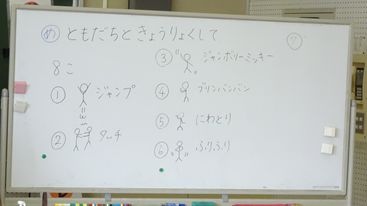 め ともだちと きょうりょくして
8こ
① ジャンプ
② タッチ
③ ジャンボリーミッキー
④ ブリンバンバン
⑤ にわとり
⑥ ふりふり